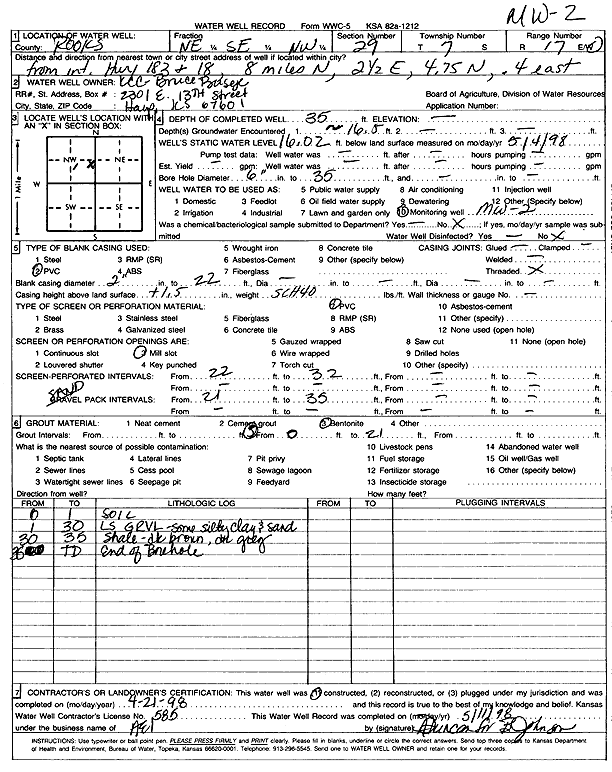 MW-2
WATER WELL RECORD Form WWC-5 KSA 82a-1212
1 LOCATION OF WATER WELL: Fraction Section Number Township Number Range Number
County: ROOKS NE ¼ SE ¼ NW ¼ 29 T 7 S R 17 E/W
Distance and direction from nearest town or city street address of well if located within city?
from int. Hwy 183 & 18 8 miles N, 2 1/2 E, 4.75 N, .4 east
2 WATER WELL OWNER: KCC- Bruce
RR#, St. Address, Box # : 2301 E. 13TH Street Board of Agriculture, Division of Water Resources
City, State, ZIP Code : Hays, KS 67601 Application Number:
3 LOCATE WELL'S LOCATION WITH AN "X" IN SECTION BOX:
N
NW X NE
W E
SW SE
S
1 Mile
4 DEPTH OF COMPLETED WELL 35 ft. ELEVATION: —
Depth(s) Groundwater Encountered 1. ~ 16.5 ft. 2. — ft. 3. — ft.
WELL'S STATIC WATER LEVEL 16.02 ft. below land surface measured on mo/day/yr 5/4/98
Pump test data: Well water was — ft. after — hours pumping — gpm
Est. Yield — gpm: Well water was — ft. after — hours pumping — gpm
Bore Hole Diameter 6" in. to 35 ft., and — in. to — ft.
WELL WATER TO BE USED AS: 5 Public water supply 8 Air conditioning 11 Injection well
1 Domestic 3 Feedlot 6 Oil field water supply 9 Dewatering 12 Other (Specify below)
2 Irrigation 4 Industrial 7 Lawn and garden only 10 Monitoring well MW-2
Was a chemical/bacteriological sample submitted to Department? Yes — No X ; If yes, mo/day/yr sample was submitted
Water Well Disinfected? Yes — No X
5 TYPE OF BLANK CASING USED: 5 Wrought iron 8 Concrete tile CASING JOINTS: Glued — Clamped —
1 Steel 3 RMP (SR) 6 Asbestos-Cement 9 Other (specify below) Welded —
2 PVC 4 ABS 7 Fiberglass Threaded X
Blank casing diameter 2" in. to 22 ft., Dia — in. to — ft., Dia — in. to — ft.
Casing height above land surface +1.5 in., weight SCH40 lbs./ft. Wall thickness or gauge No. —
TYPE OF SCREEN OR PERFORATION MATERIAL: 7 PVC 10 Asbestos-cement
1 Steel 3 Stainless steel 5 Fiberglass 8 RMP (SR) 11 Other (specify)
2 Brass 4 Galvanized steel 6 Concrete tile 9 ABS 12 None used (open hole)
SCREEN OR PERFORATION OPENINGS ARE: 5 Gauzed wrapped 8 Saw cut 11 None (open hole)
1 Continuous slot 3 Mill slot 6 Wire wrapped 9 Drilled holes
2 Louvered shutter 4 Key punched 7 Torch cut 10 Other (specify)
SCREEN-PERFORATED INTERVALS: From 22 ft. to 32 ft., From — ft. to — ft.
From — ft. to — ft., From — ft. to — ft.
SAND
GRAVEL PACK INTERVALS: From 21 ft. to 35 ft., From — ft. to — ft.
From — ft. to — ft., From — ft. to — ft.
6 GROUT MATERIAL: 1 Neat cement 2 Cement grout 3 Bentonite 4 Other
Grout Intervals: From ft. to ft., From 0 ft. to 21 ft., From ft. to ft.
What is the nearest source of possible contamination: 10 Livestock pens 14 Abandoned water well
1 Septic tank 4 Lateral lines 7 Pit privy 11 Fuel storage 15 Oil well/Gas well
2 Sewer lines 5 Cess pool 8 Sewage lagoon 12 Fertilizer storage 16 Other (specify below)
3 Watertight sewer lines 6 Seepage pit 9 Feedyard 13 Insecticide storage
Direction from well? How many feet?
FROM TO LITHOLOGIC LOG FROM TO PLUGGING INTERVALS
0 1 SOIL
1 30 LS GRVL -some silty clay & sand
30 35 Shale -dk brown, dk grey
35 TD End of Borehole
7 CONTRACTOR'S OR LANDOWNER'S CERTIFICATION: This water well was (1) constructed, (2) reconstructed, or (3) plugged under my jurisdiction and was
completed on (mo/day/year) 4-21-98 and this record is true to the best of my knowledge and belief. Kansas
Water Well Contractor's License No. 585 This Water Well Record was completed on (mo/day/yr) 5/11/98
under the business name of by (signature) Johnson
INSTRUCTIONS: Use typewriter or ball point pen. PLEASE PRESS FIRMLY and PRINT clearly. Please fill in blanks, underline or circle the correct answers. Send top three copies to Kansas Department
of Health and Environment, Bureau of Water, Topeka, Kansas 66620-0001. Telephone: 913-296-5545. Send one to WATER WELL OWNER and retain one for your records.